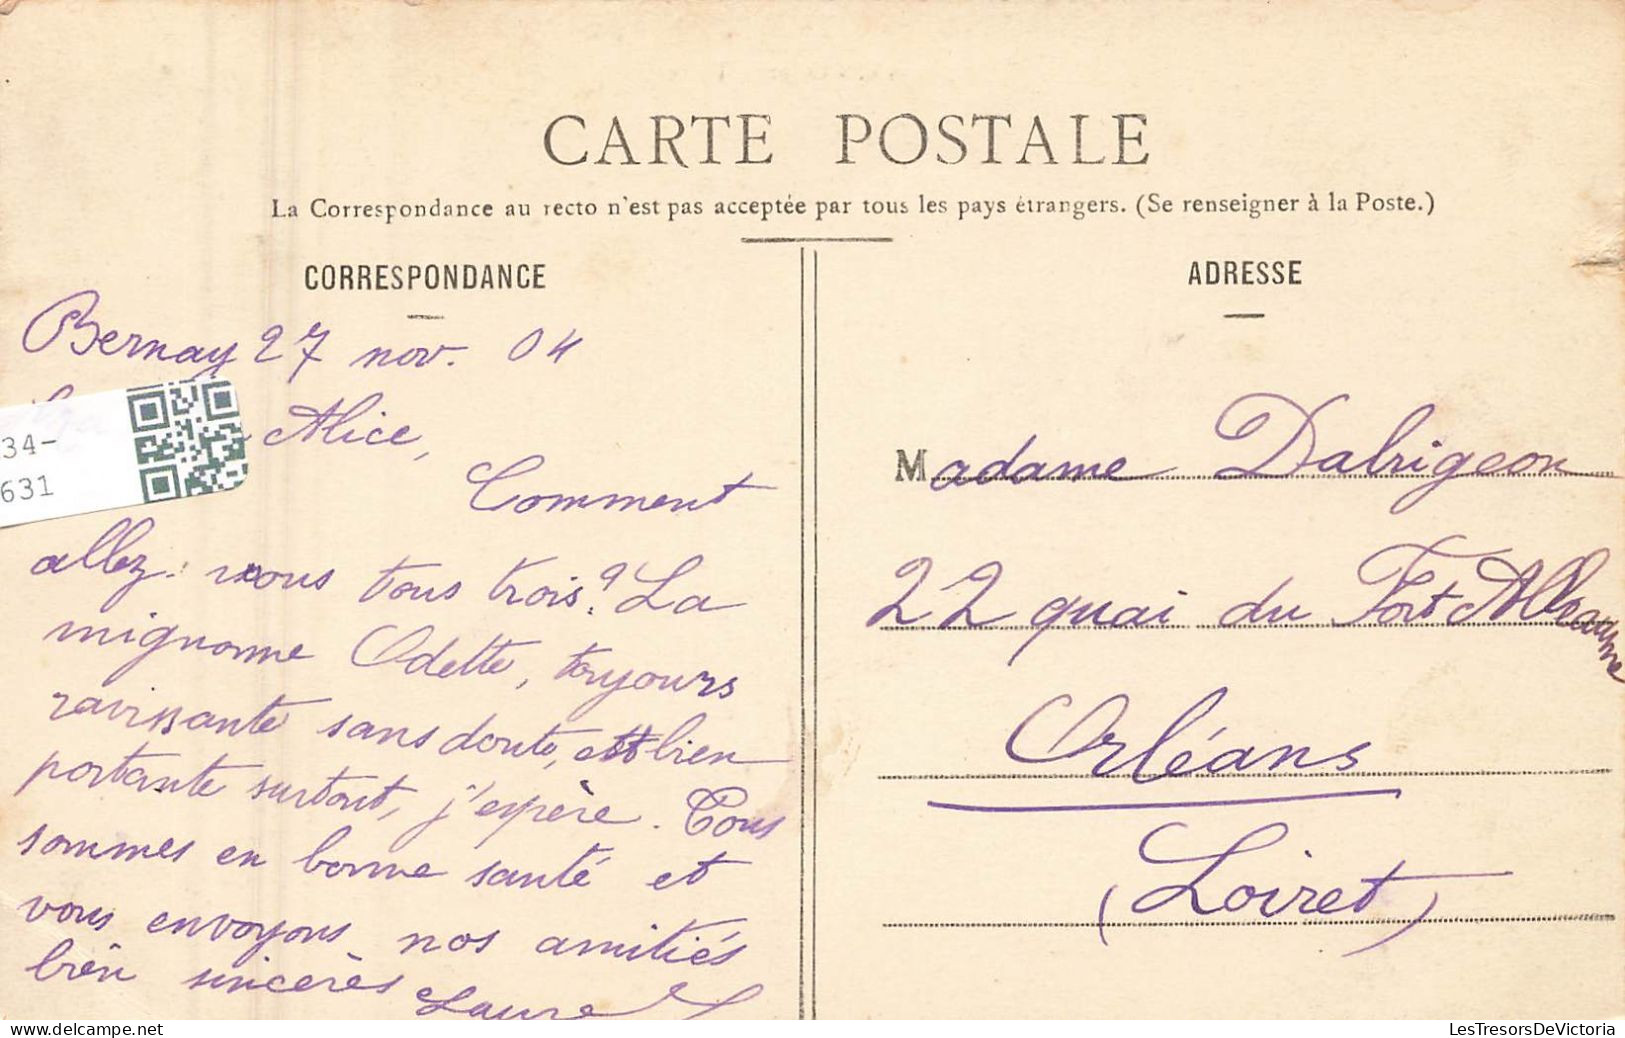 CARTE POSTALE
La Correspondance au recto n'est pas acceptée par tous les pays étrangers. (Se renseigner à la Poste.)
CORRESPONDANCE
Bernay 27 nov. 04
Alice,
Comment
allez-vous tous trois? La
mignonne Odette, toujours
ravissante sans doute, est bien
portante surtout, j'espère. Tous
sommes en bonne santé et
vous envoyons nos amitiés
bien sincères
Laure
34-
631
ADRESSE
Madame Dabrigeon
22 quai du Fort Alleaume
Orléans
(Loiret)
LesTresorsDeVictoria
delcampe.net